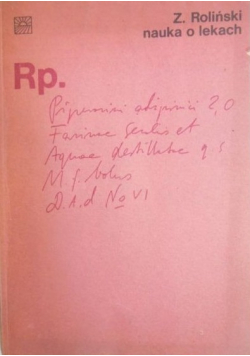 Z. Roliński
nauka o lekach
Rp.
2,0
Farinae Secalis et
Aquae destillatae q.s
M f. bolus
D.t.d No VI